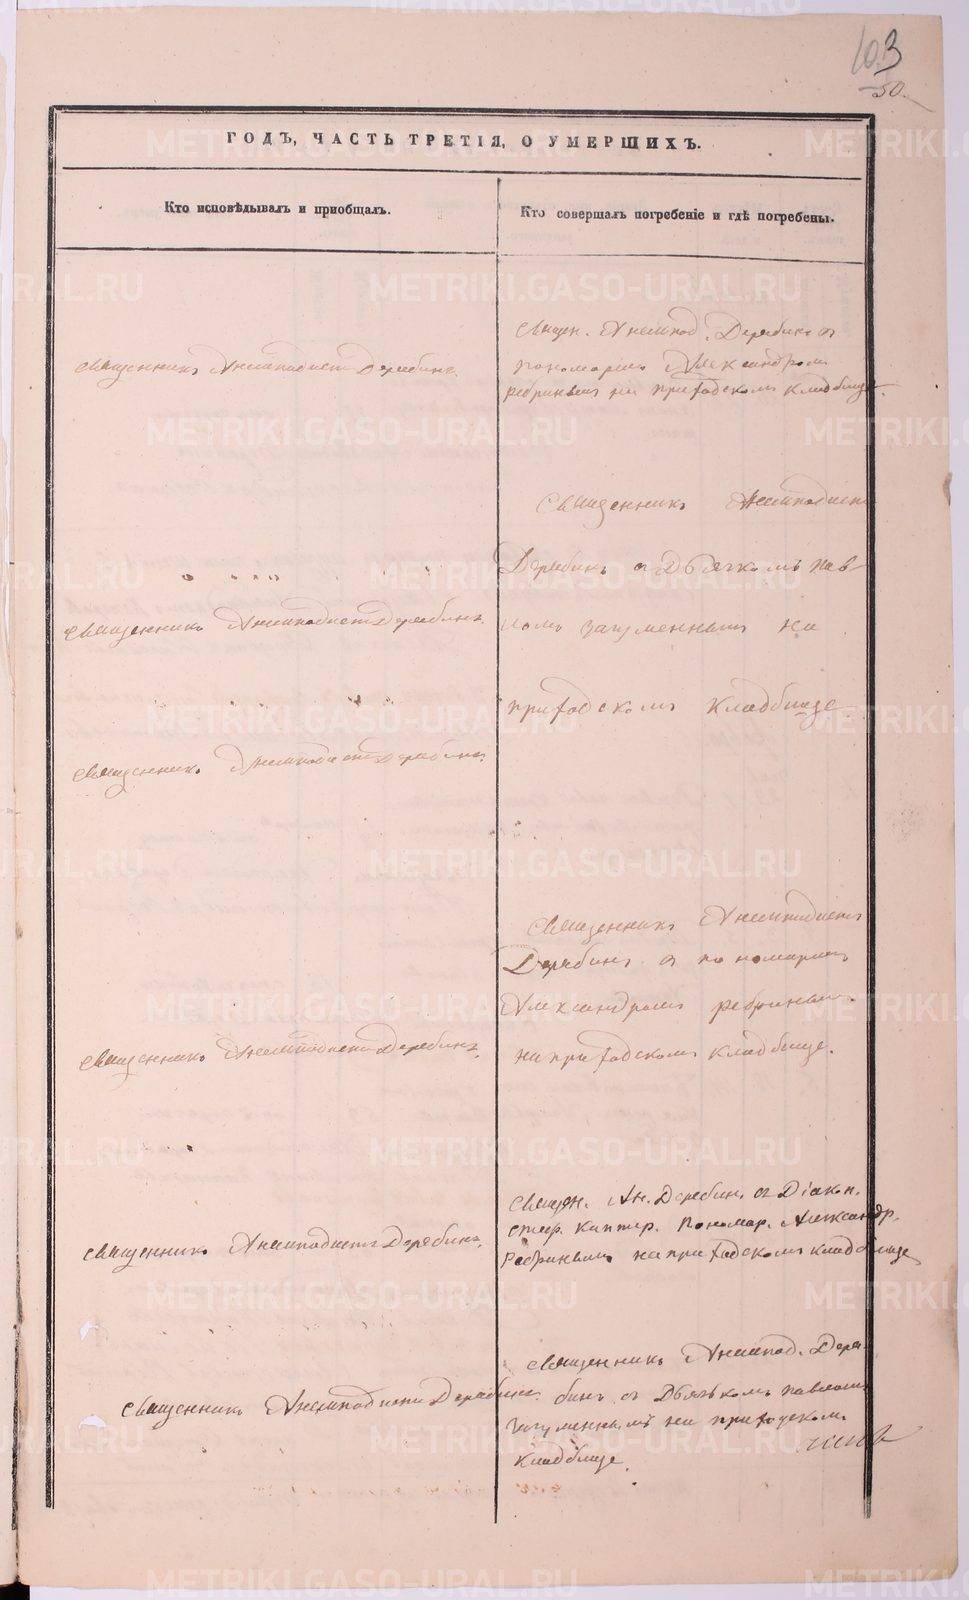 103
50.
ГОДЪ, ЧАСТЬ ТРЕТІЯ, О УМЕРШИХЪ.
Кто исповѣдывалъ и приобщалъ.
Кто совершалъ погребеніе и гдѣ погребены.
Священникъ Анемподистъ Дерябинъ.
Священ. Анемпод. Дерябинъ съ
пономаремъ Александромъ
Ребринымъ на приходскомъ кладбище.
Священникъ Анемподистъ
Дерябинъ съ Дьячкомъ Пав-
ломъ Загуменнымъ на
приходскомъ кладбище
Священникъ Анемподистъ Дерябинъ.
Священникъ Анемподистъ Дерябинъ.
Священникъ Анемподистъ
Дерябинъ съ пономаремъ
Александромъ Ребринымъ.
на приходскомъ кладбище.
Священникъ Анемподистъ Дерябинъ.
Священ. Ан. Дерябин. съ Діакон.
Пономар. Александр.
Ребринымъ на приходскомъ кладбище
Священникъ Анемподистъ Дерябинъ.
Священникъ Анемпод. Деря-
бинъ съ Дьячкомъ Павломъ
Загуменнымъ на приходскомъ
кладбище.
Священникъ Анемподистъ Дерябинъ.
METRIKI.GASO-URAL.RU